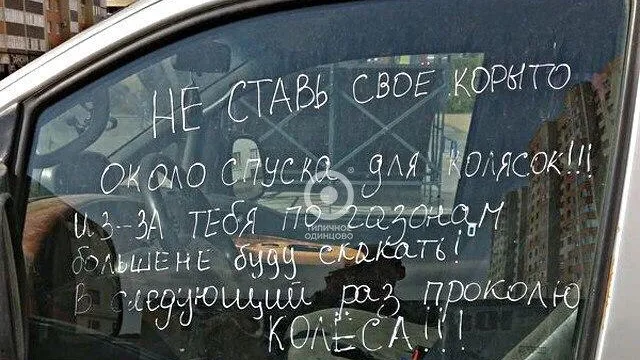 НЕ СТАВЬ СВОЕ КОРЫТО
ОКОЛО СПУСКА ДЛЯ КОЛЯСОК!!!
ИЗ-ЗА ТЕБЯ ПО ГАЗОНАМ
ТИПИЧНОЕ
ОДИНЦОВО
БОЛЬШЕ НЕ БУДУ СКАКАТЬ!
В СЛЕДУЮЩИЙ РАЗ ПРОКОЛЮ
КОЛЁСА!!!